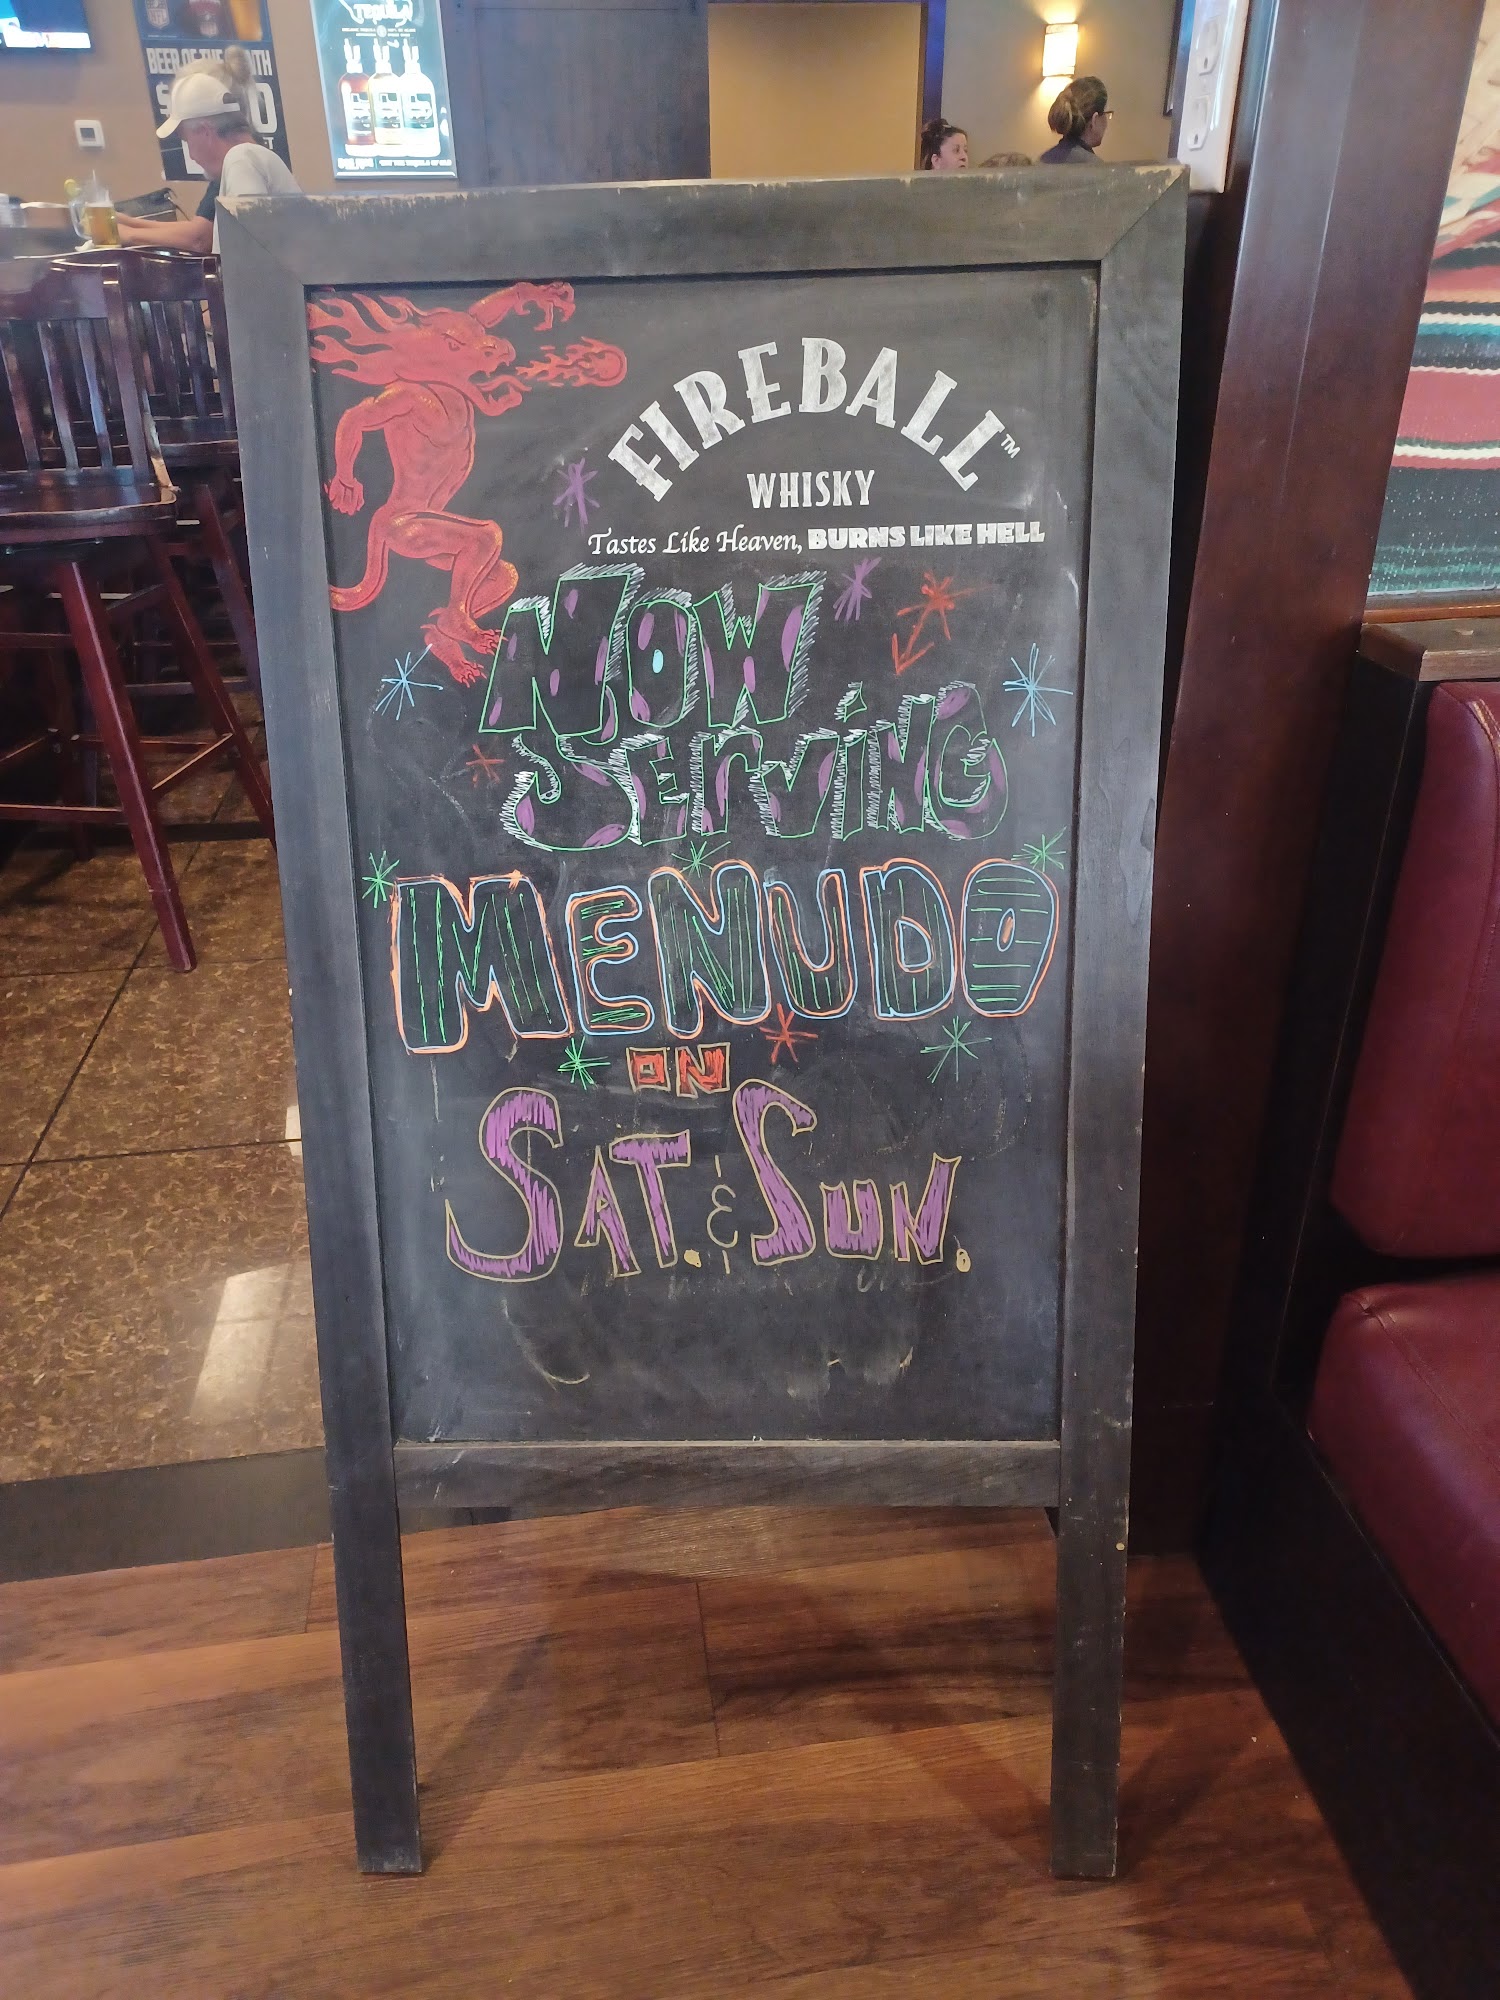 BEER OF THE
TEQUILA
FIREBALL™
WHISKY
Tastes Like Heaven, BURNS LIKE HELL
Now
Serving
MENUDO
ON
SAT. & SUN.